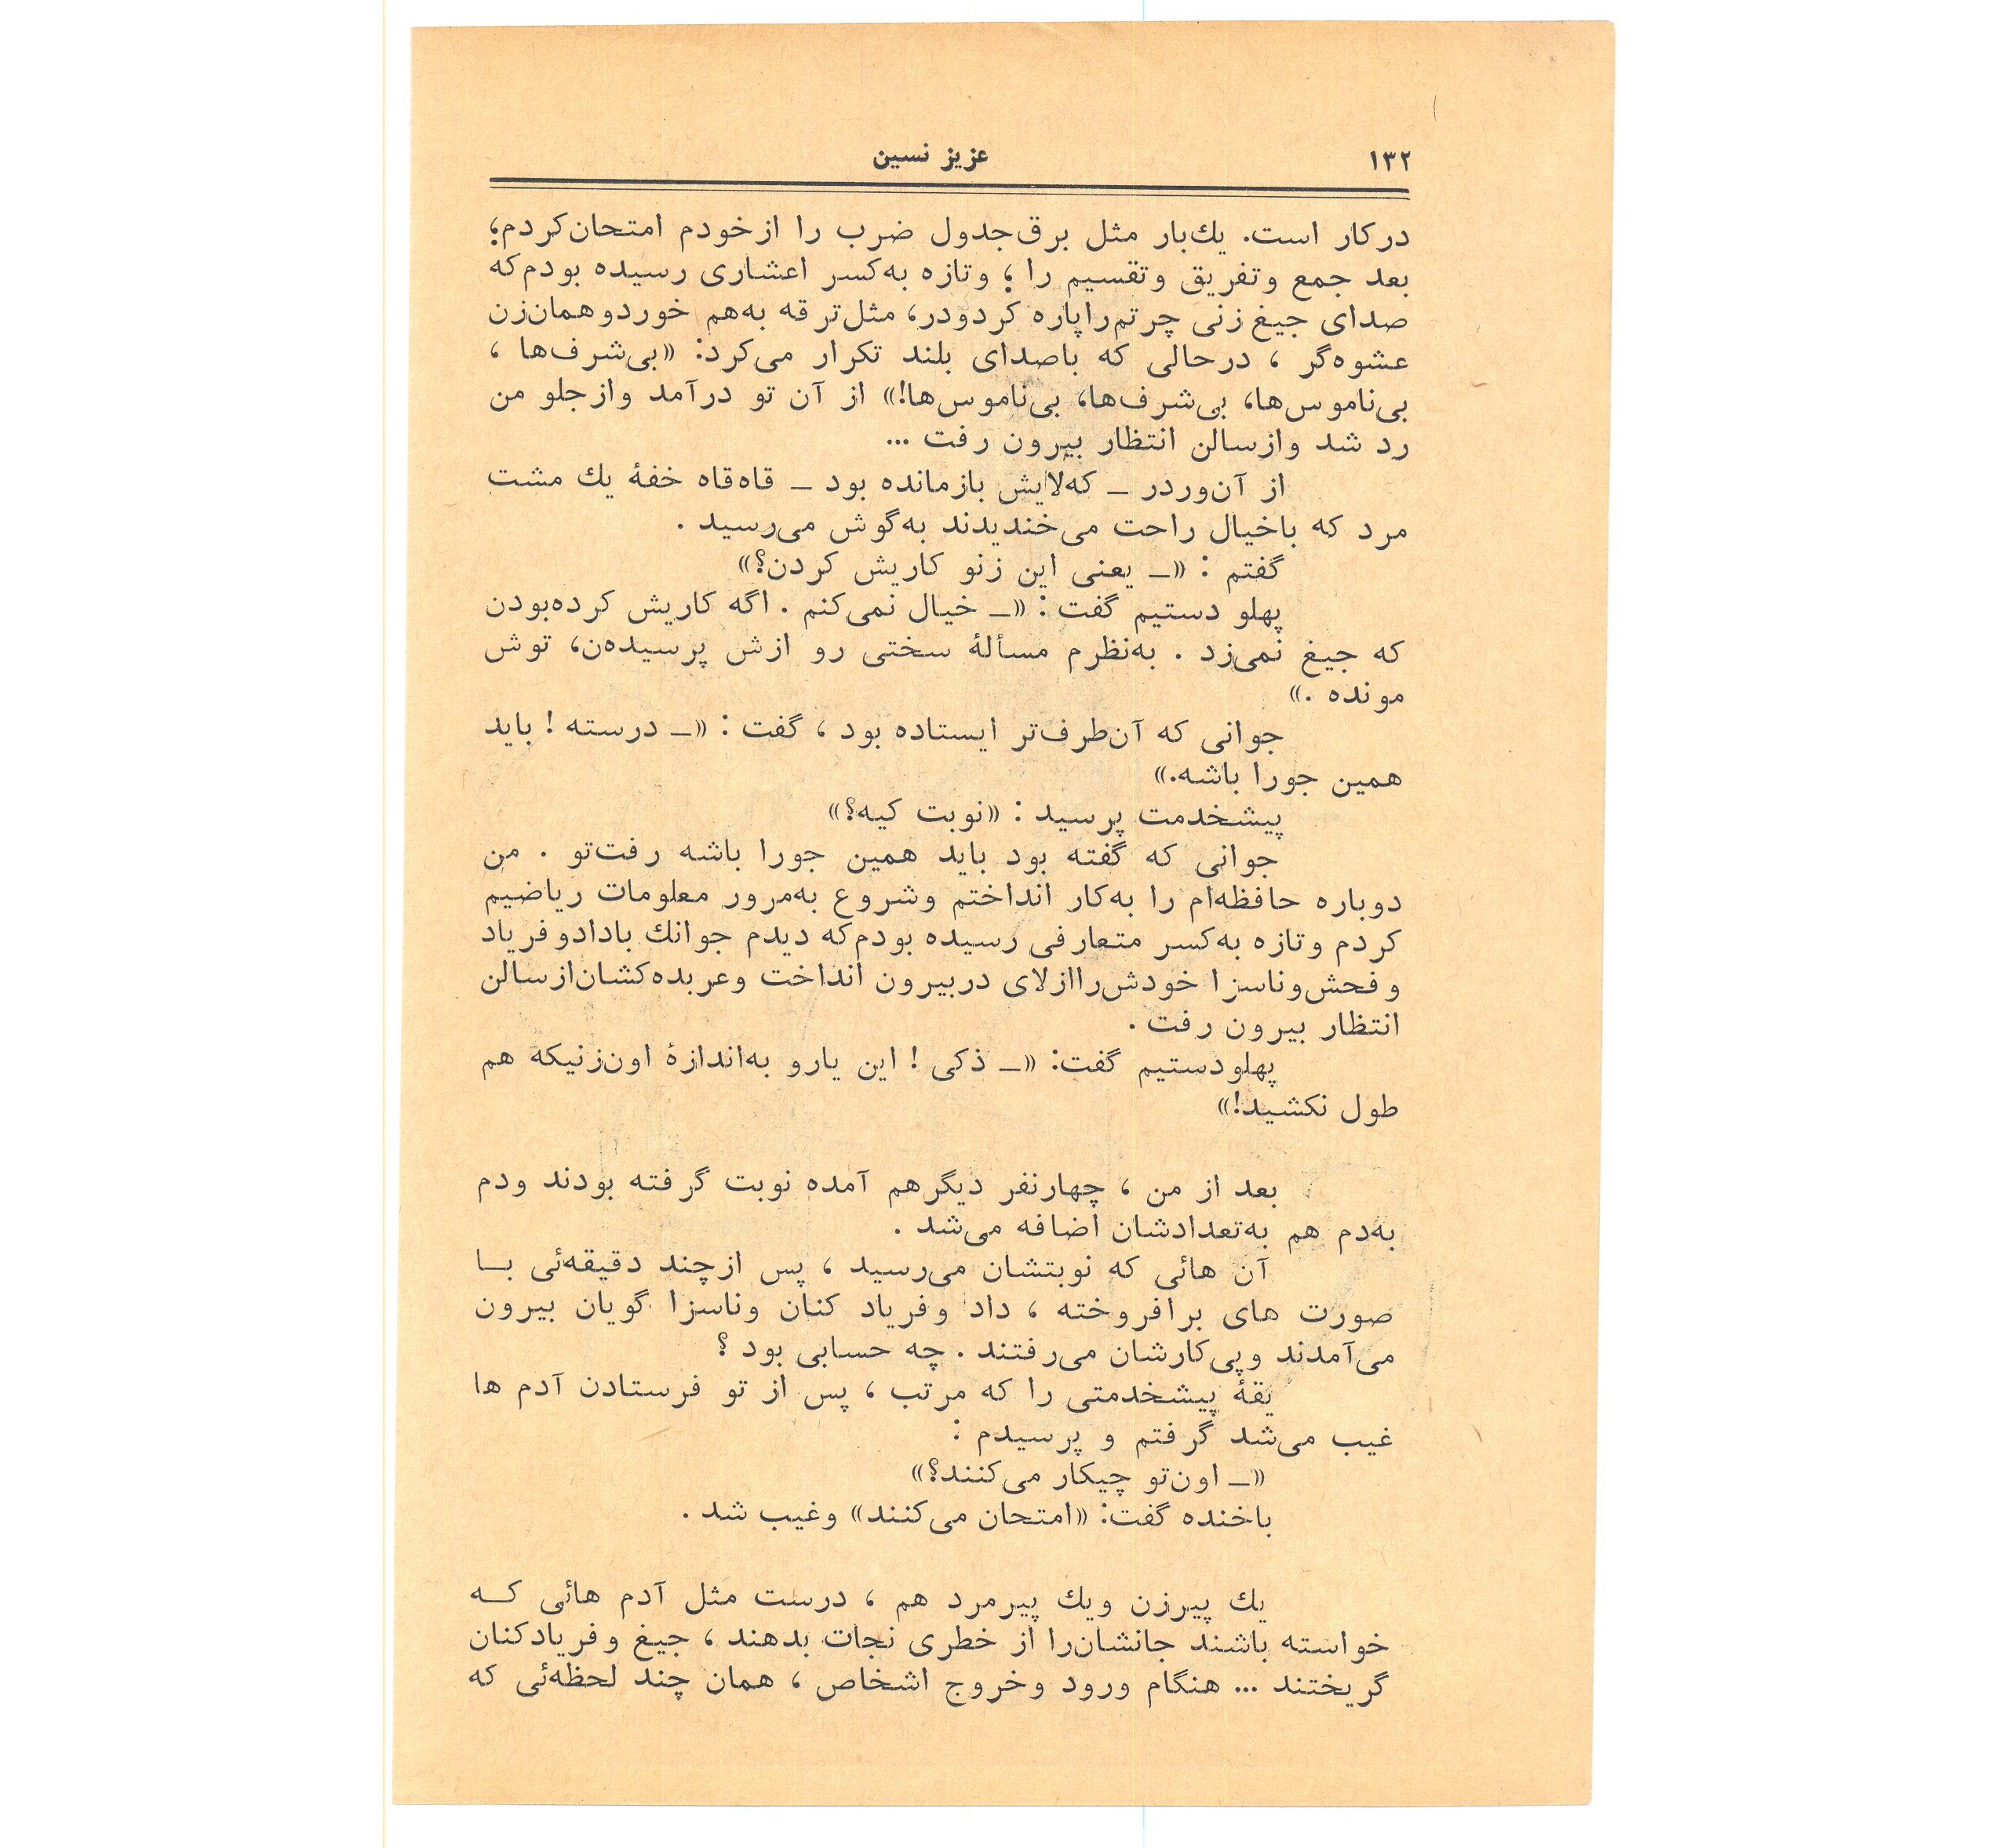 ۱۳۲
عزیز نسین
درکار است. یك‌بار مثل برق‌جدول ضرب را ازخودم امتحان‌کردم؛
بعد جمع وتفریق وتقسیم را ؛ وتازه به‌کسر اعشاری رسیده بودم‌که
صدای جیغ زنی چرتم‌راپاره کردودر، مثل‌ترقه به‌هم خوردوهمان‌زن
عشوه‌گر ، درحالی که باصدای بلند تکرار می‌کرد: «بی‌شرف‌ها ،
بی‌ناموس‌ها، بی‌شرف‌ها، بی‌ناموس‌ها!» از آن تو درآمد وازجلو من
رد شد وازسالن انتظار بیرون رفت ...
از آن‌وردر ـ که‌لایش بازمانده بود ـ قاه‌قاه خفهٔ یك مشت
مرد که باخیال راحت می‌خندیدند به‌گوش می‌رسید .
گفتم : «ـ یعنی این زنو کاریش کردن؟»
پهلو دستیم گفت : «ـ خیال نمی‌کنم . اگه کاریش کرده‌بودن
که جیغ نمی‌زد . به‌نظرم مسألهٔ سختی رو ازش پرسیده‌ن، توش
مونده .»
جوانی که آن‌طرف‌تر ایستاده بود ، گفت : «ـ درسته ! باید
همین جورا باشه.»
پیشخدمت پرسید : «نوبت کیه؟»
جوانی که گفته بود باید همین جورا باشه رفت‌تو . من
دوباره حافظه‌ام را به‌کار انداختم وشروع به‌مرور معلومات ریاضیم
کردم وتازه به‌کسر متعارفی رسیده بودم‌که دیدم جوانك بادادوفریاد
وفحش‌وناسزا خودش‌راازلای دربیرون انداخت وعربده‌کشان‌ازسالن
انتظار بیرون رفت .
پهلودستیم گفت: «ـ ذکی ! این یارو به‌اندازهٔ اون‌زنیکه هم
طول نکشید!»
بعد از من ، چهارنفر دیگرهم آمده نوبت گرفته بودند ودم
به‌دم هم به‌تعدادشان اضافه می‌شد .
آن هائی که نوبتشان می‌رسید ، پس ازچند دقیقه‌ئی بــا
صورت های برافروخته ، داد وفریاد کنان وناسزا گویان بیرون
می‌آمدند وپی‌کارشان می‌رفتند . چه حسابی بود ؟
یقهٔ پیشخدمتی را که مرتب ، پس از تو فرستادن آدم ها
غیب می‌شد گرفتم و پرسیدم :
«ـ اون‌تو چیکار می‌کنند؟»
باخنده گفت: «امتحان می‌کنند» وغیب شد .
یك پیرزن ویك پیرمرد هم ، درست مثل آدم هائی کــه
خواسته باشند جانشان‌را از خطری نجات بدهند ، جیغ وفریادکنان
گریختند ... هنگام ورود وخروج اشخاص ، همان چند لحظه‌ئی که